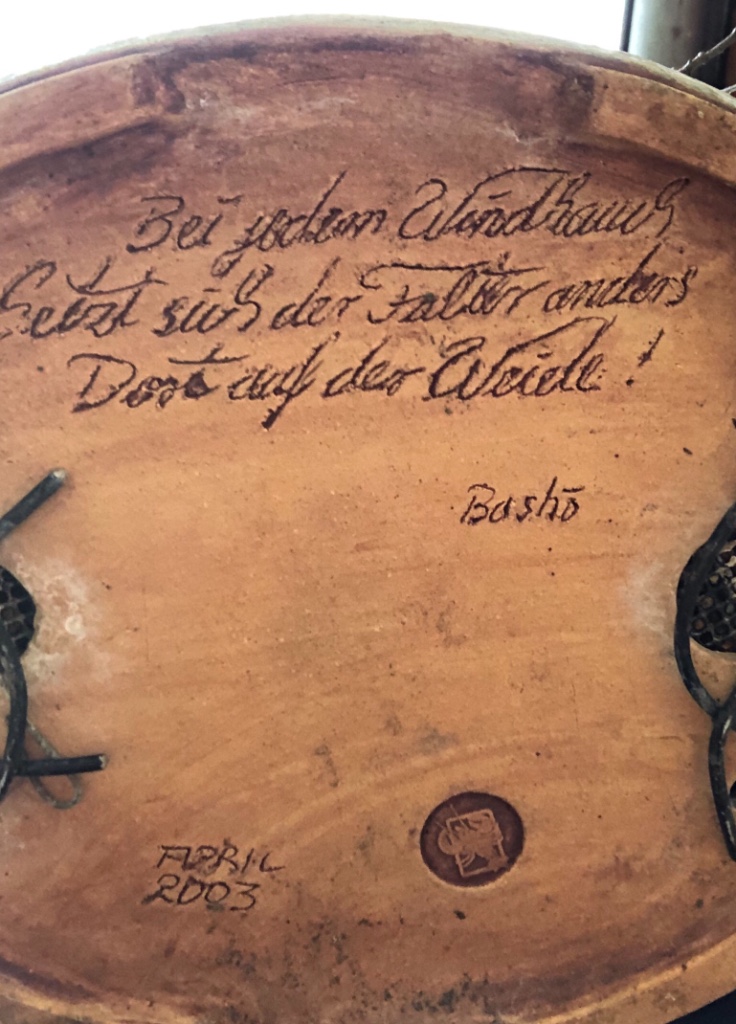 Bei jedem Windhauch
Setzt sich der Falter anders
Dort auf der Weide!
Bashō
APRIL
2003